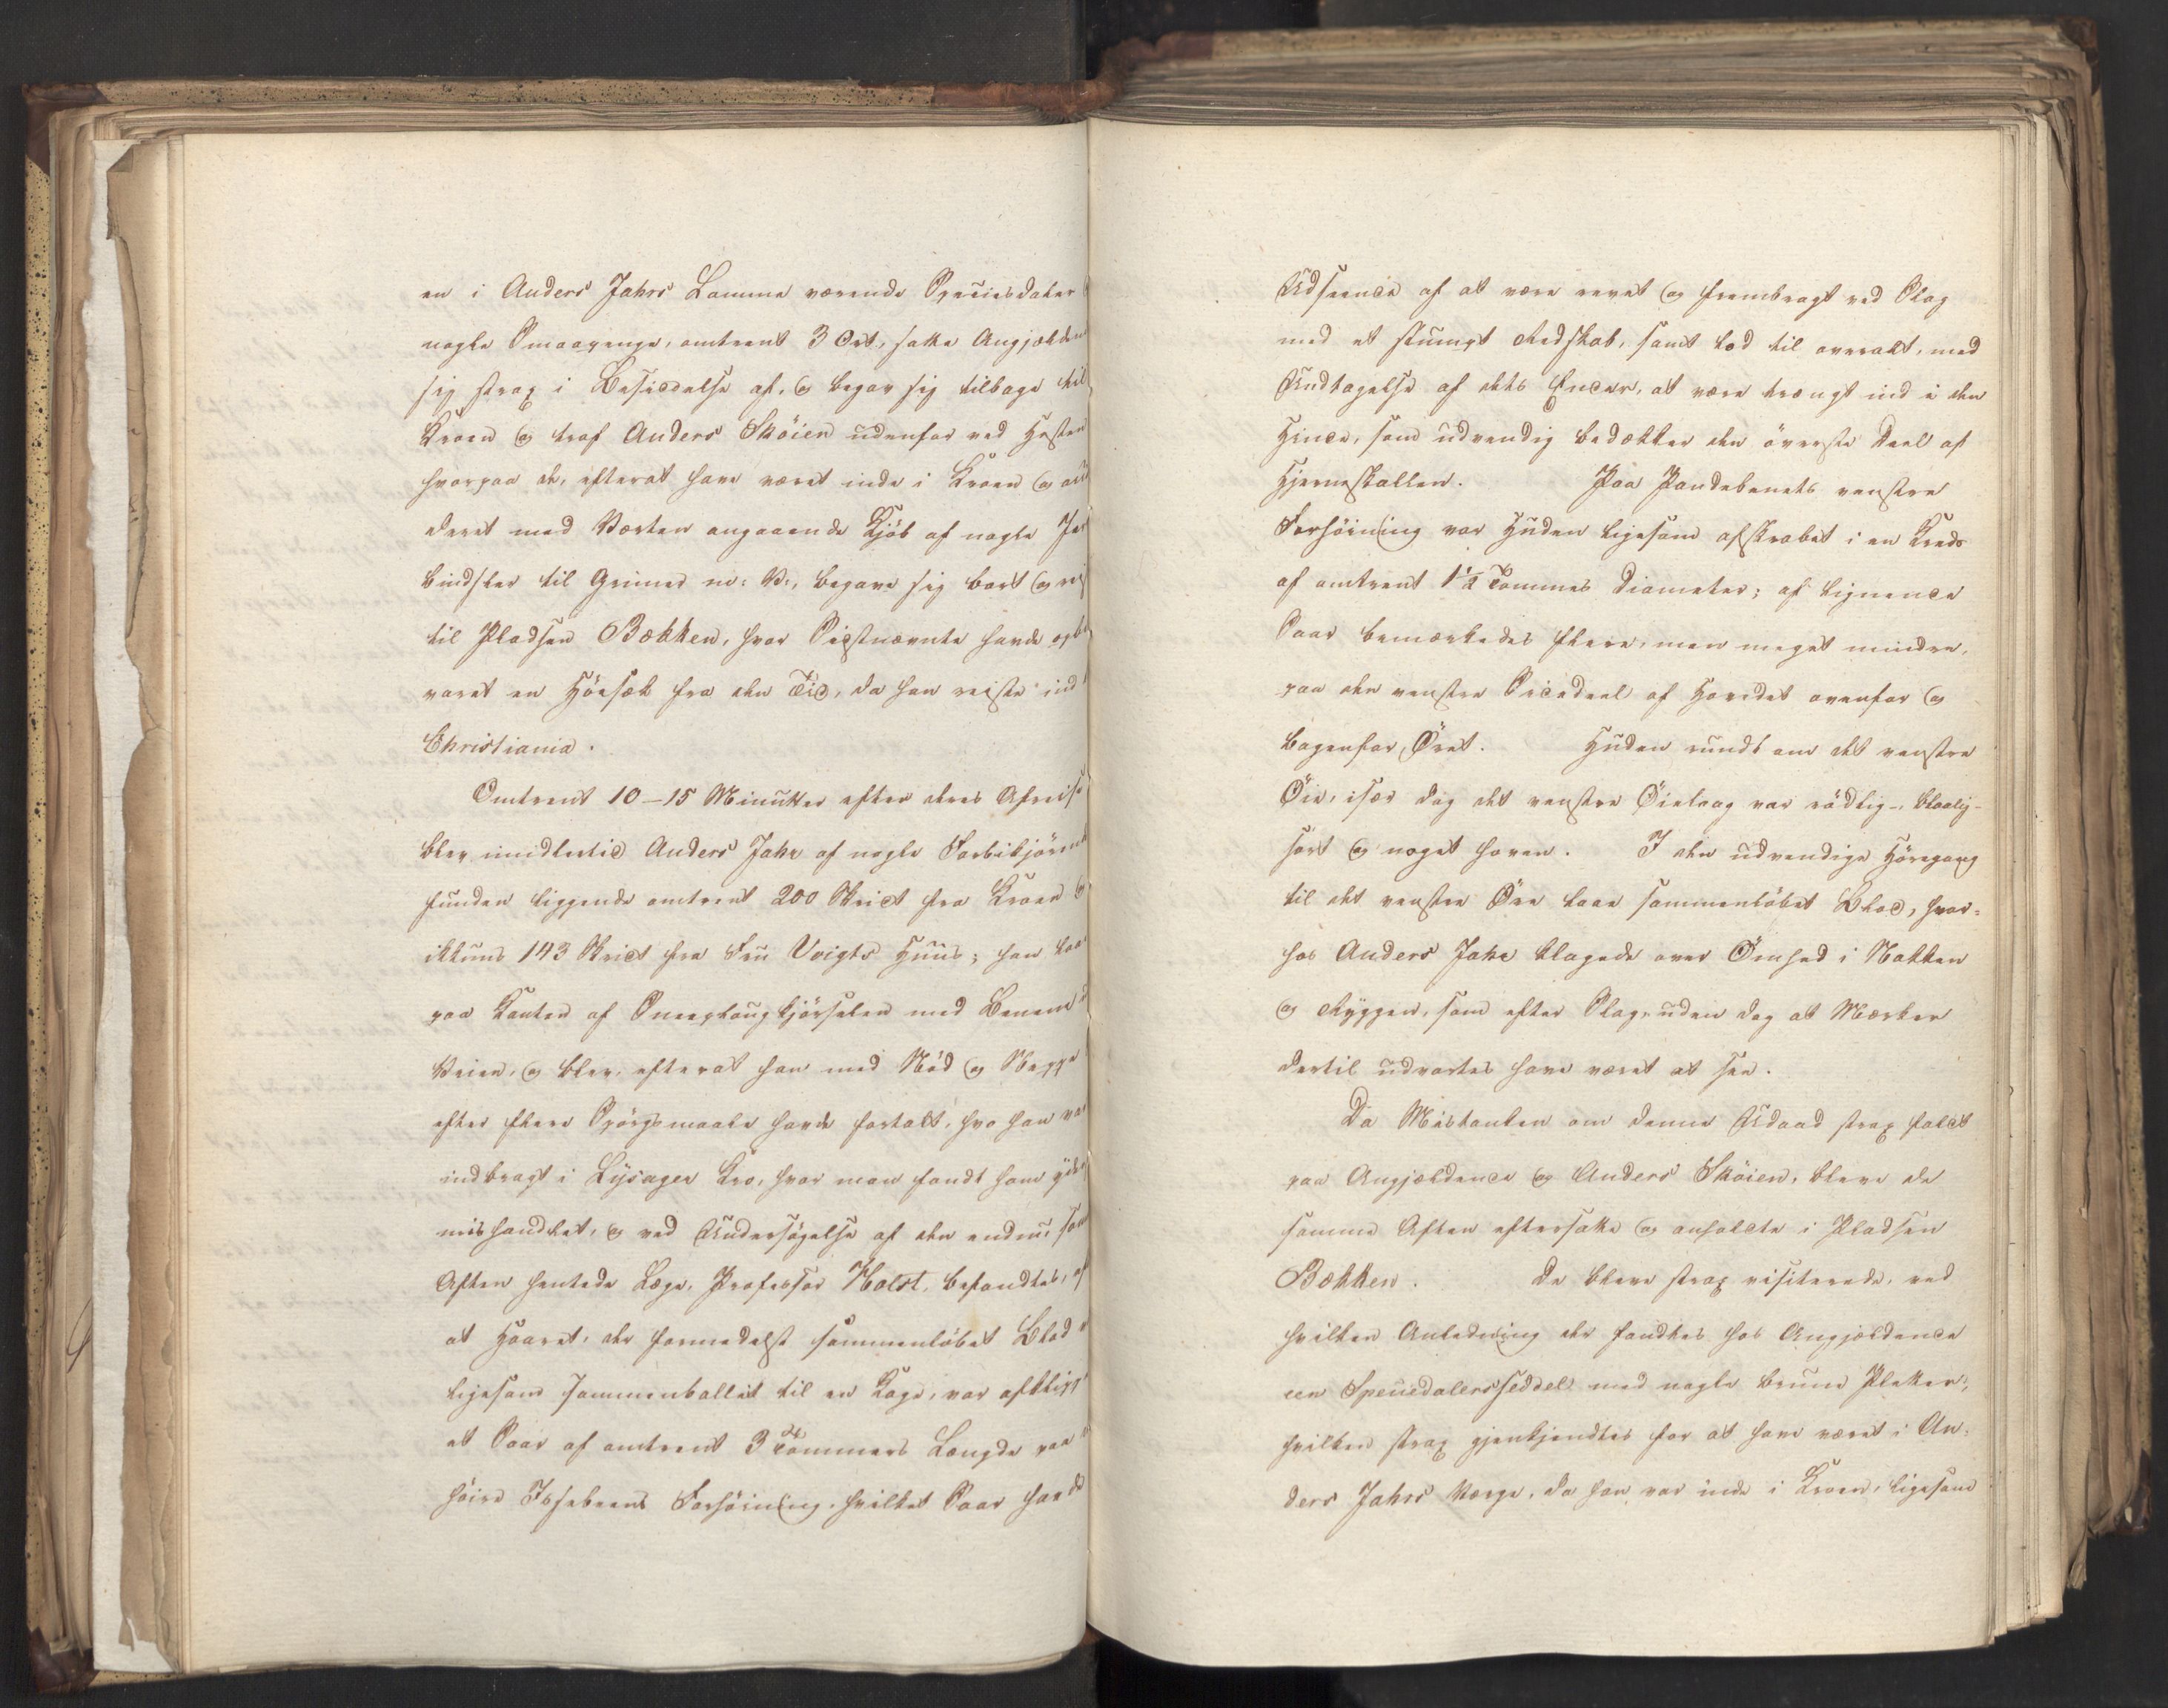 en i Anders Jahrs Lomme værende Speciesdaler
nogle Smaapenge, omtrent 3 Ort, satte Angjælden
sig strax i Besiddelse af, og begav sig tilbage til
Kroen og traf Anders Sköien udenfor ved Hesten
hvorpaa de, efterat have været inde i Kroen og
deret med Værten angaaende Kjöb af nogle Jer
bindsler til Grimer m: V:, begave sig bort og rei
til Pladsen Bækken, hvor Sidstnævnte havde opbe
varet en Höesæk fra den Tid, da han reiste ind
Christiania.
Omtrent 10-15 Minutter efter deres Afreise
blev imidlertid Anders Jahr af nogle Forbikjörend
funden liggende omtrent 200 Skridt fra Kroen og
ikkuns 143 Skridt fra Fru Voigts Huus; han laae
paa Kanten af Sneeplougkjörselen med Benene
Veien, og blev, efterat han med Nöd og Neppe
efter flere Spörgsmaale havde fortalt, hvo han var
indbragt i Lysager Kro, hvor man fandt ham yder
mishandlet, og ved Undersögelse af den endnu sam
Aften hentede Læge, Professor Holst, befandtes, ef
at Haaret, der formedelst sammenlöbet Blod
ligesom sammenballet til en Kage, var afklipp
et Saar af omtrent 3 Tommers Længde paa
höire Issebeens Forhöining, hvilket Saar havde
Udseende af at være revet og frembragt ved Slag
med et stumpt Redskab, samt lod til overalt, med
Undtagelse af dets Ender, at være trængt ind i den
Hinde, som udvendig bedækker den överste Deel af
Hjerneskallen. Paa Pandebenets venstre
Forhöining var Huden ligesom afskrabet i en Kreds
af omtrent 1½ Tommes Diameter; af lignende
Saar bemærkedes flere, men meget mindre,
paa den venstre Sidedeel af Hovedet ovenfor og
bagenfor Öret. Huden rundt om det venstre
Öie, især dog det venstre Öielaag var rödlig-, blaalig-
sort og noget hoven. I den udvendige Höregang
til det venstre Öre laae sammenlöbet Blod, hvor-
hos Anders Jahr klagede over Ömhed i Nakken
og Ryggen, som efter Slag, uden dog at Mærker
dertil udvortes have været at see.
Da Mistanken om denne Udaad strax faldt
paa Angjældende og Anders Sköien, bleve de
samme Aften eftersatte og anholdte i Pladsen
Bækken. De bleve strax visiterede, ved
hvilken Anledning der fandtes hos Angjældende
een Speciedalersseddel med nogle brune Pletter,
hvilken strax gjenkjendtes for at have været i An-
ders Jahrs Værge, da han var inde i Kroen, ligesom